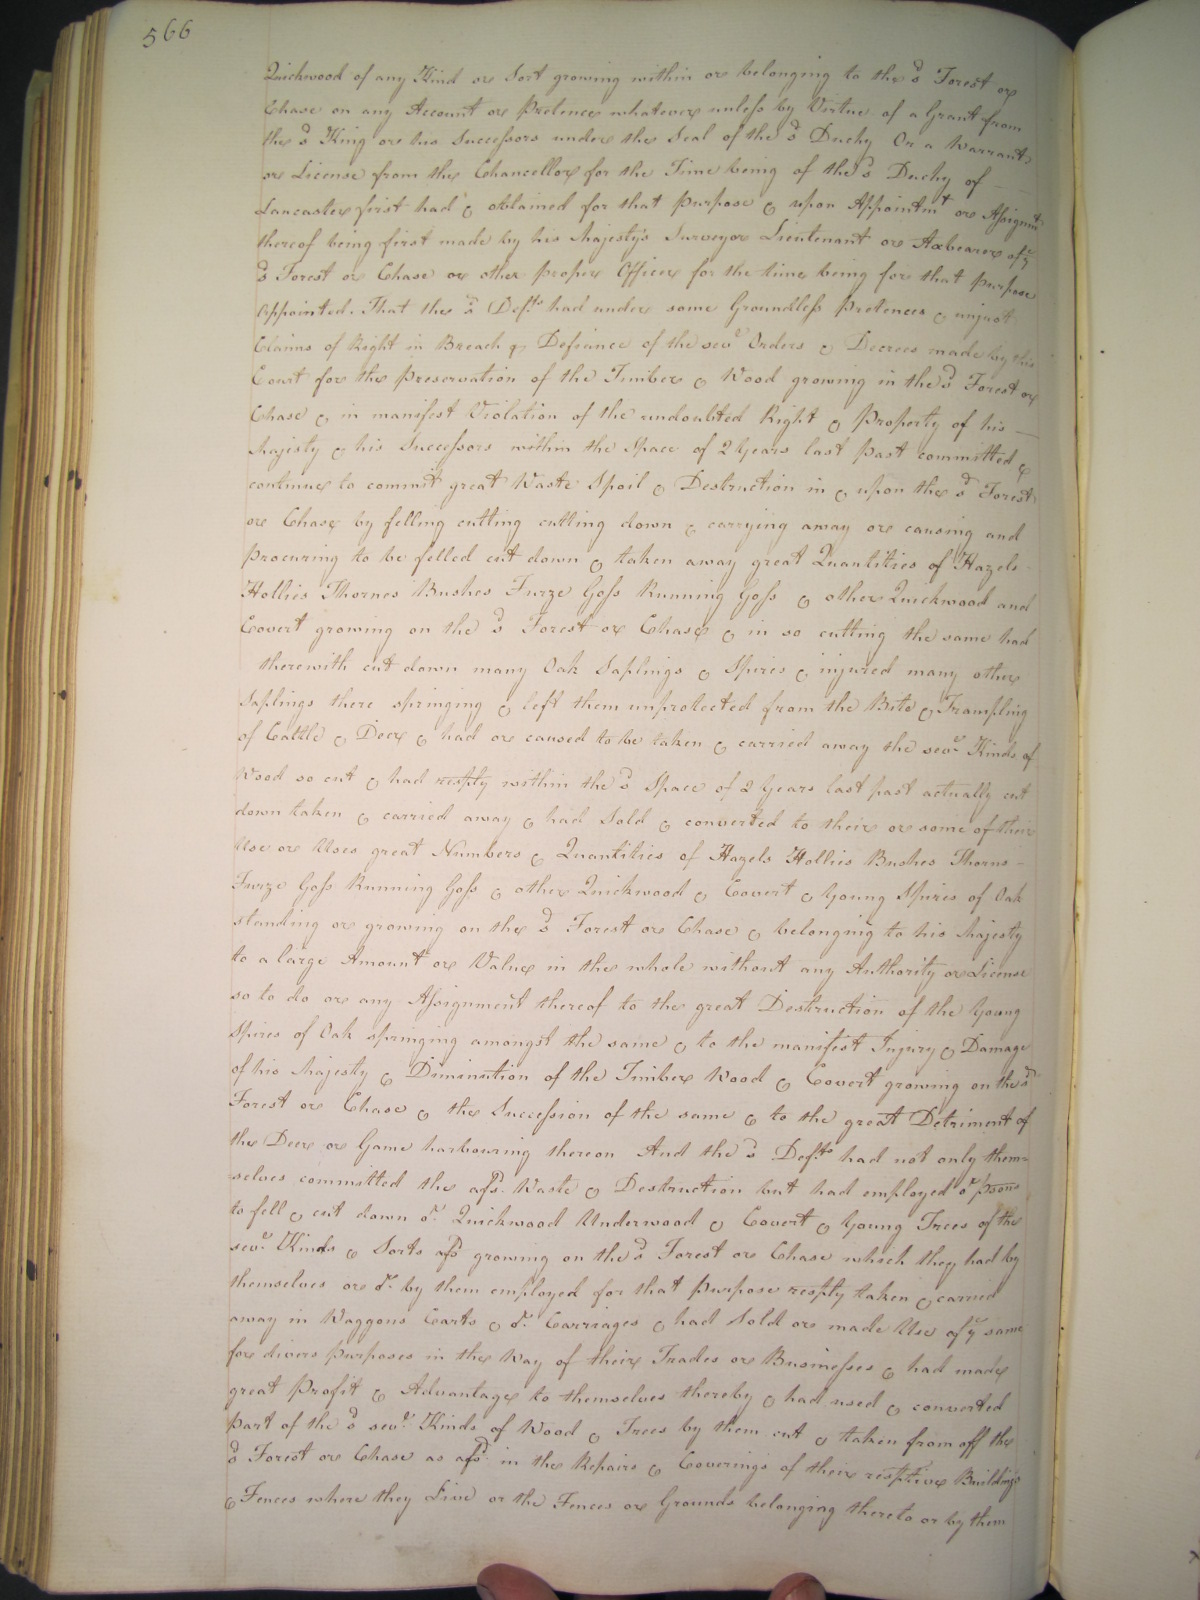 566
Quickwood of any Kind or Sort growing within or belonging to the sd Forest or
Chase on any Account or Pretence whatever unless by Virtue of a Grant from
the sd King or his Successors under the Seal of the sd Duchy Or a Warrant
or License from the Chancellor for the Time being of the sd Duchy of
Lancaster first had & obtained for that purpose & upon Appointmt or Assignmt
thereof being first made by his Majesty's Surveyor Lieutenant or Axbearer of ye
sd Forest or Chase or other proper Officer for the time being for that purpose
Appointed. That the sd Defts had under some Groundless Pretences & unjust
Claims of Right in Breach & Defiance of the sevl Orders & Decrees made by this
Court for the Preservation of the Timber & Wood growing in the sd Forest or
Chase & in manifest Violation of the undoubted Right & Property of his
Majesty & his Successors within the Space of 2 Years last past committed &
continue to commit great Waste Spoil & Destruction in & upon the sd Forest
or Chase by felling cutting cutting down & carrying away or causing and
procuring to be felled cut down & taken away great Quantities of Hazels
Hollies Thornes Bushes Furze Goss Running Goss & other Quickwood and
Covert growing on the sd Forest or Chase & in so cutting the same had
therewith cut down many Oak Saplings & Spires & injured many other
Saplings there springing & left them unprotected from the Bite & Trampling
of Cattle & Deer & had or caused to be taken & carried away the sevl Kinds of
Wood so cut & had resply within the sd Space of 2 Years last past actually cut
down taken & carried away & had Sold & converted to their or some of their
Use or Uses great Numbers & Quantities of Hazels Hollies Bushes Thorns
Furze Goss Running Goss & other Quickwood & Covert & Young Spires of Oak
standing or growing on the sd Forest or Chase & belonging to his Majesty
to a large Amount or Value in the whole without any Authority or License
so to do or any Assignment thereof to the great Destruction of the Young
Spires of Oak springing amongst the same & to the manifest Injury & Damage
of his Majesty & Diminution of the Timber Wood & Covert growing on the sd
Forest or Chase & the Succession of the same & to the great Detriment of
the Deer or Game harbouring thereon And the sd Defts had not only them=
selves committed the afsd Waste & Destruction but had employed or psons
to fell & cut down or Quickwood Underwood & Covert & Young Trees of the
sevl Kinds & Sorts afsd growing on the sd Forest or Chase which they had by
themselves or or by them employed for that purpose resply taken & carried
away in Waggons Carts & or Carriages & had Sold or made Use of ye same
for divers purposes in the Way of their Trades or Businesses & had made
great Profit & Advantage to themselves thereby & had used & converted
part of the sd sevl Kinds of Wood & Trees by them cut & taken from off the
sd Forest or Chase as afsd in the Repairs & Coverings of their resptive Buildings
& Fences where they Live or the Fences or Grounds belonging thereto or by them